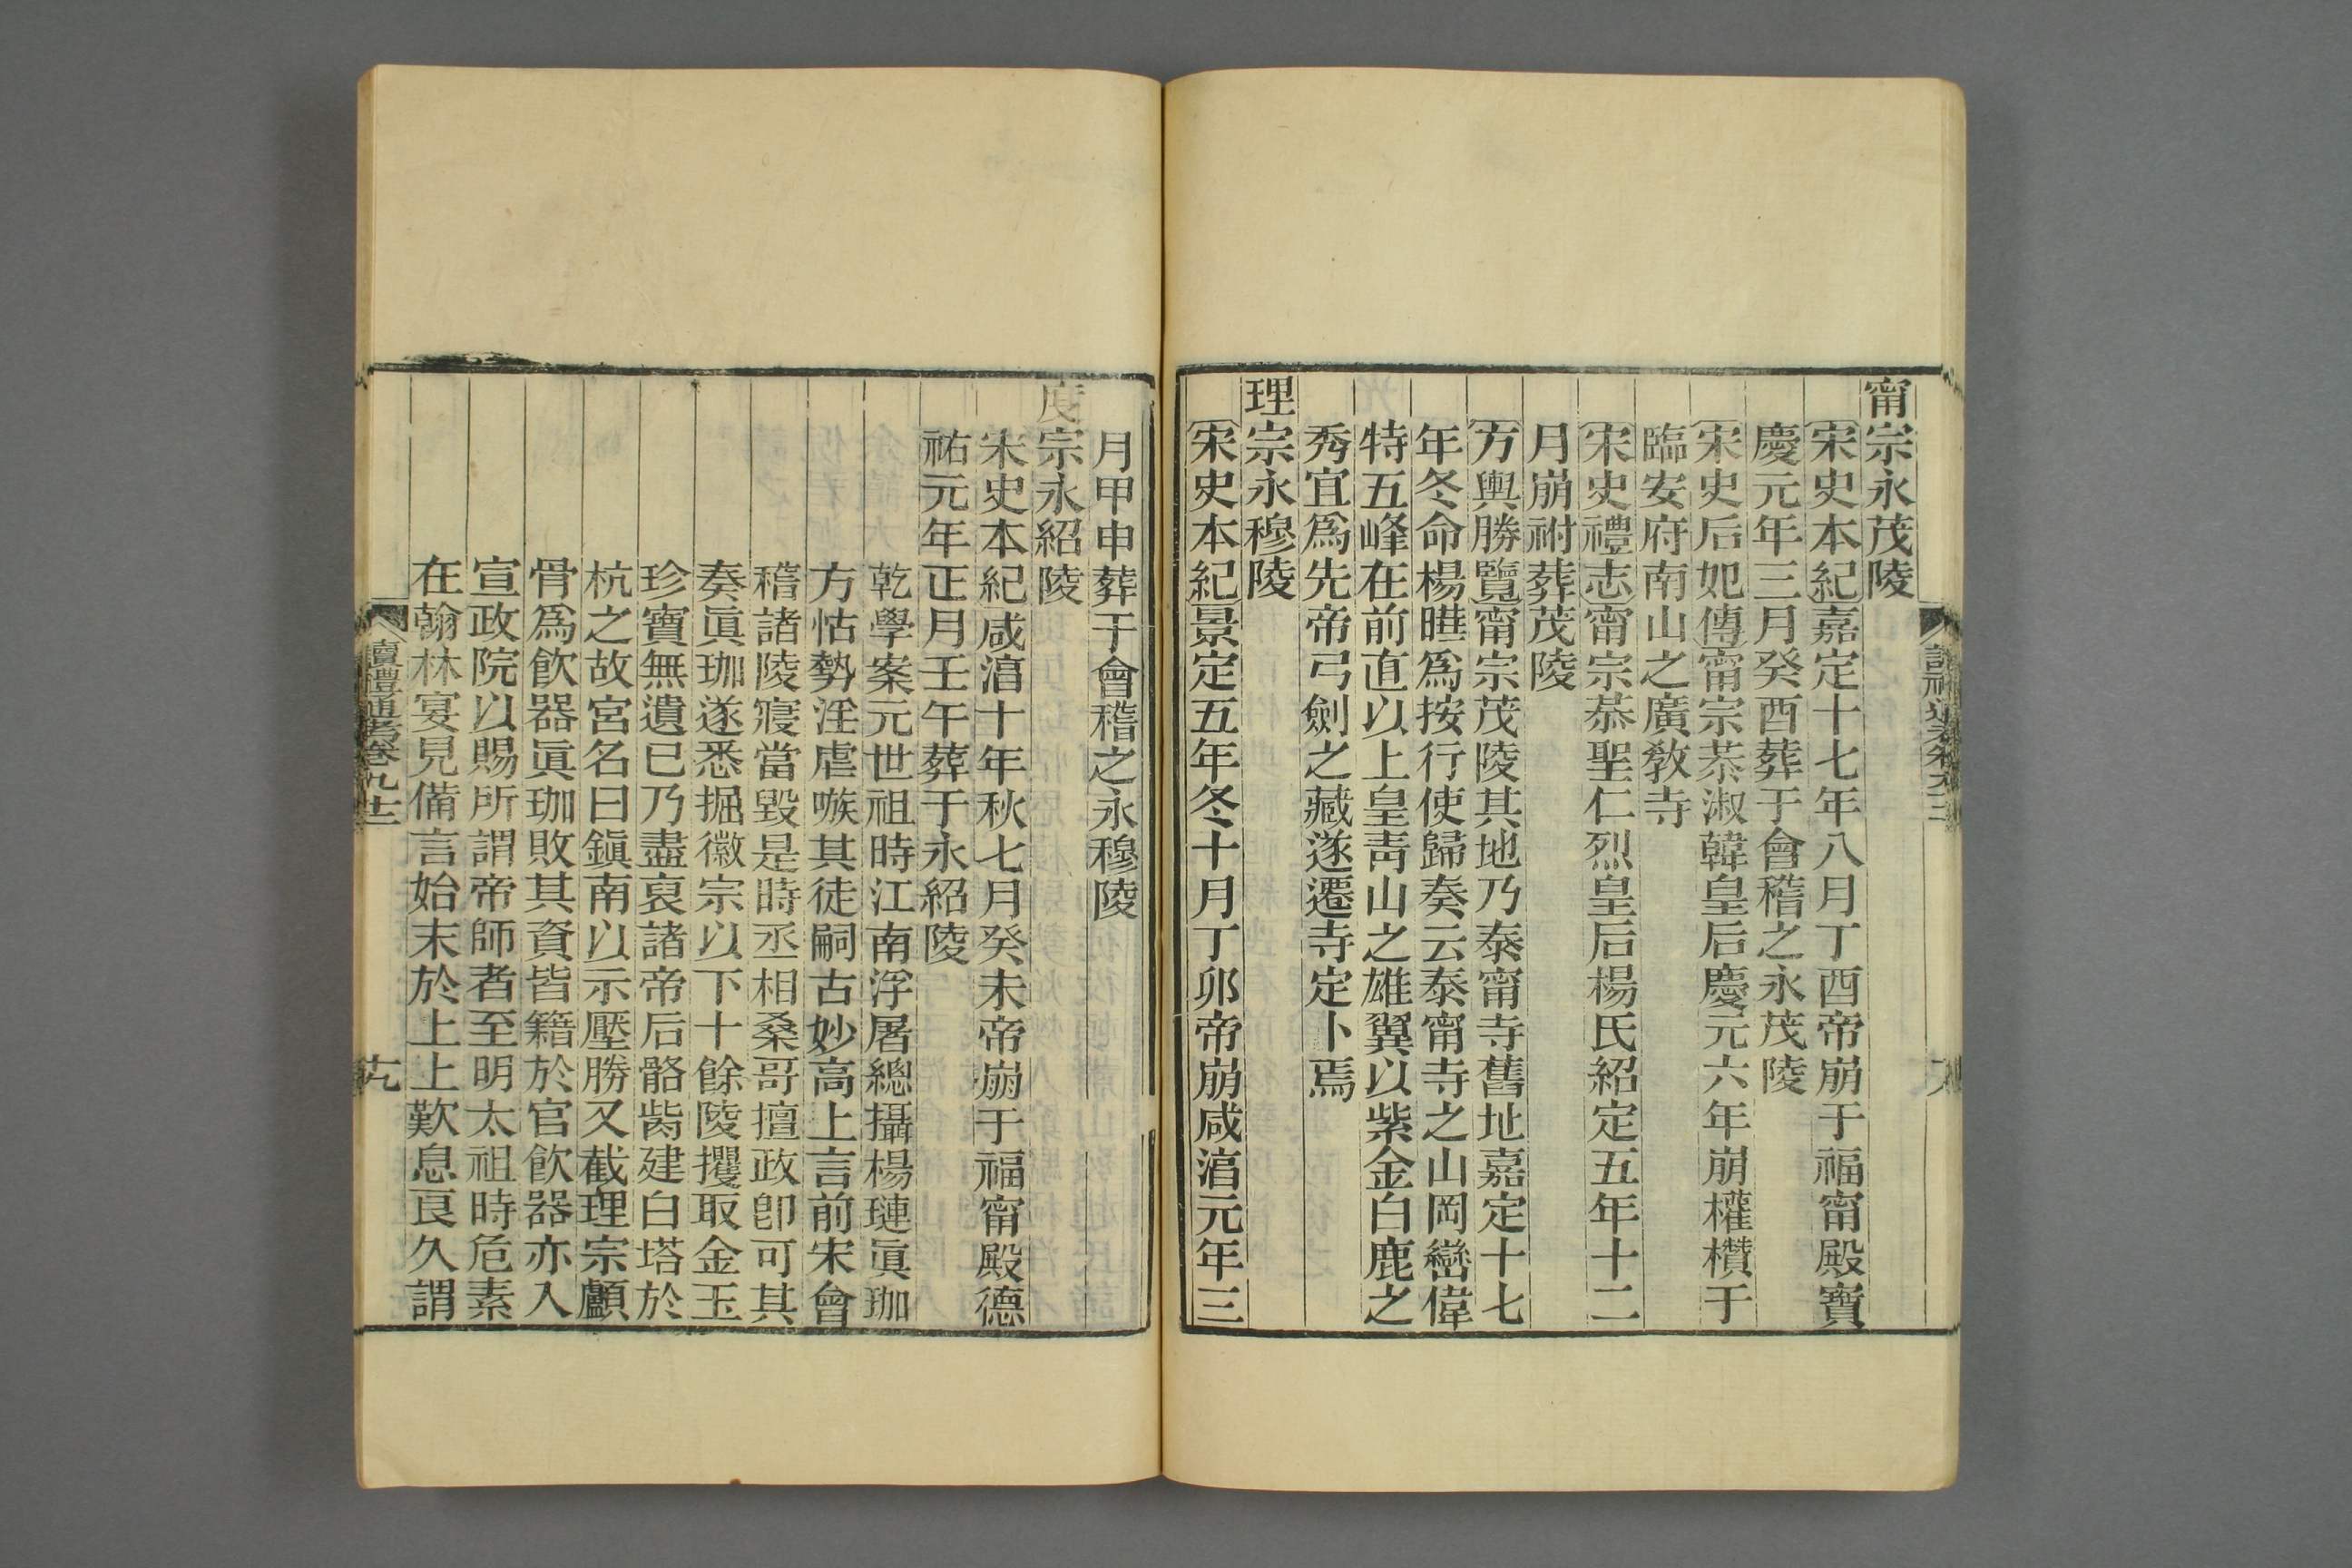 甯宗永茂陵
宋史本紀嘉定十七年八月丁酉帝崩于福甯殿寶
慶元年三月癸酉葬于會稽之永茂陵
宋史后妃傳甯宗恭淑韓皇后慶元六年崩權欑于
臨安府南山之廣敎寺
宋史禮志甯宗恭聖仁烈皇后楊氏紹定五年十二
月崩祔葬茂陵
方輿勝覽甯宗茂陵其地乃泰甯寺舊址嘉定十七
年冬命楊㬙爲按行使歸奏云泰甯寺之山岡巒偉
特五峰在前直以上皇靑山之雄翼以紫金白鹿之
秀宜爲先帝弓劍之藏遂遷寺定卜焉
理宗永穆陵
宋史本紀景定五年冬十月丁卯帝崩咸湻元年三
月甲申葬于會稽之永穆陵
度宗永紹陵
宋史本紀咸湻十年秋七月癸未帝崩于福甯殿德
祐元年正月壬午葬于永紹陵
乾學案元世祖時江南浮屠總攝楊璉眞珈
方怙勢淫虐嗾其徒嗣古妙高上言前宋會
稽諸陵寢當毀是時丞相桑哥擅政卽可其
奏眞珈遂悉掘徽宗以下十餘陵攫取金玉
珍寶無遺已乃盡裒諸帝后骼胔建白塔於
杭之故宮名曰鎭南以示壓勝又截理宗顱
骨爲飮器眞珈敗其資皆籍於官飮器亦入
宣政院以賜所謂帝師者至明太祖時危素
在翰林宴見備言始末於上上歎息良久謂
讀禮通考卷九十二
十九